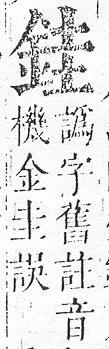 譌字舊註音
機金生訣